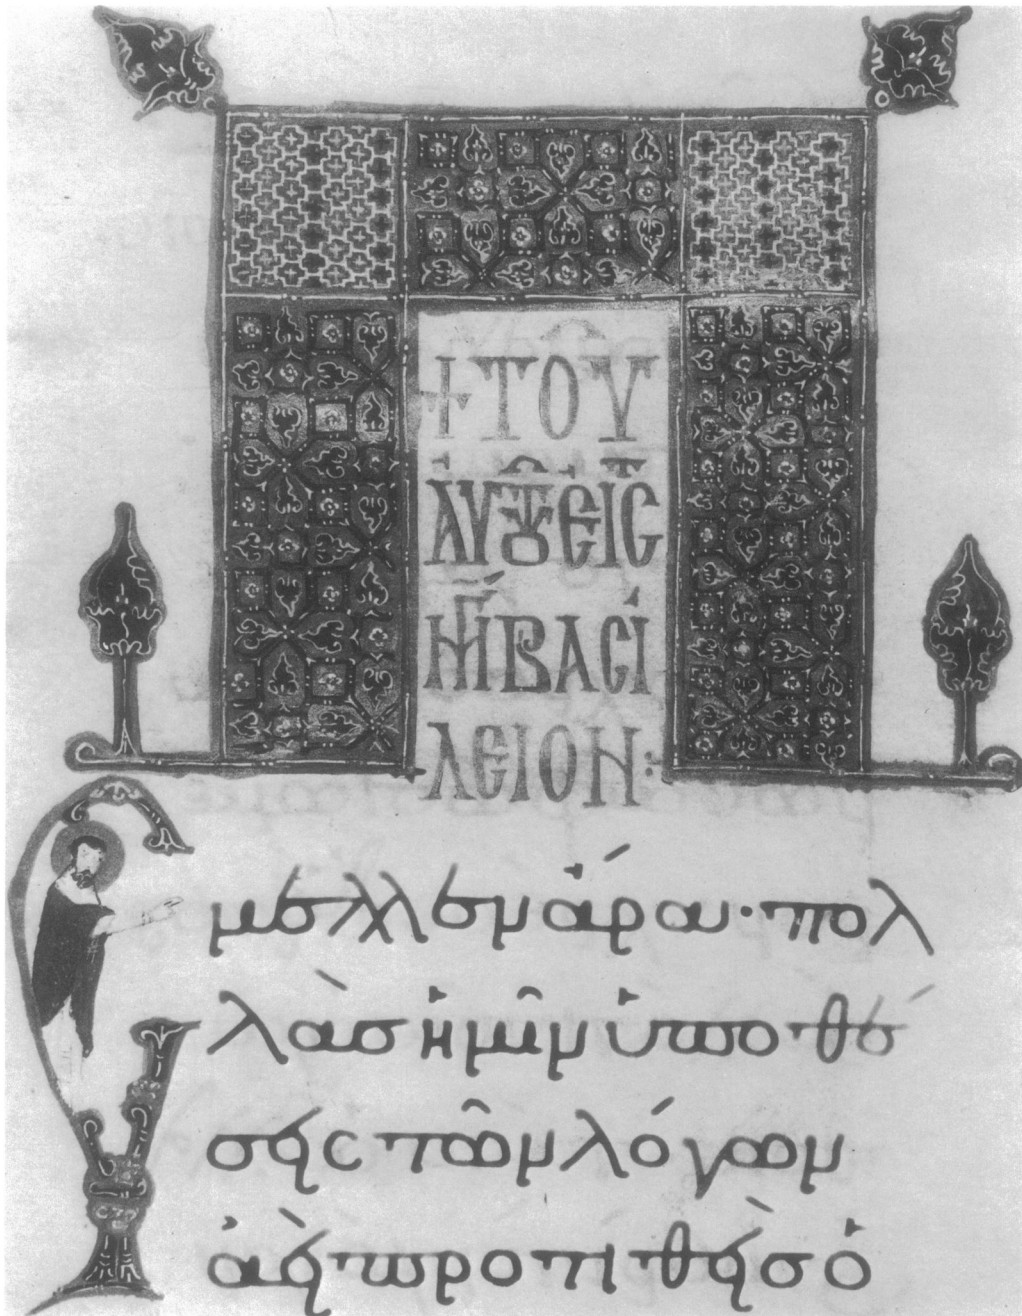 + ΤΟΥ
ἈΥΤȢ͂ ἘΙϹ
ΒΑϹΙ
ΛΕΙΟΝ:
Ἔμελλεν ἄρα· πολ
λὰσ ἡμῖν ὑποθέ
σεις τῶν λόγων
ἀεὶ προτιθεὶσ ὁ